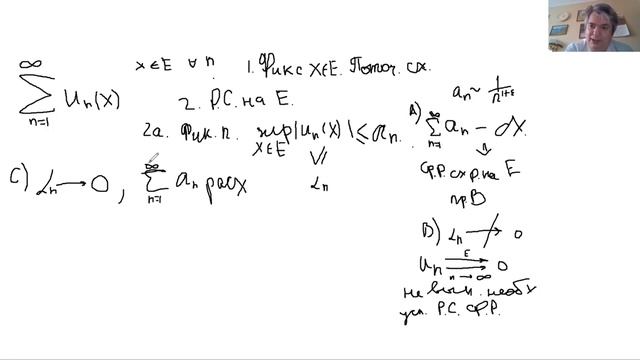 ∞
∑ uₙ(x)
n=1
x∈E ∀ n
1. Фикс x∈E. Поточ. сх.
2. Р.С. на E.
2а. Фик. n. sup |uₙ(x)| ≤ aₙ.
x∈E
αₙ
C) αₙ → 0, ∑ aₙ расх
∞
n=1
aₙ ~ 1/n^{1+ε}
A) ∞
∑ aₙ - сх.
n=1
⇓
ф.Р. сх р. на E
пр. В
B) αₙ ↛ 0
uₙ ⇉ 0
E
n→∞
не вып. необх
усл. Р.С. ф.Р.